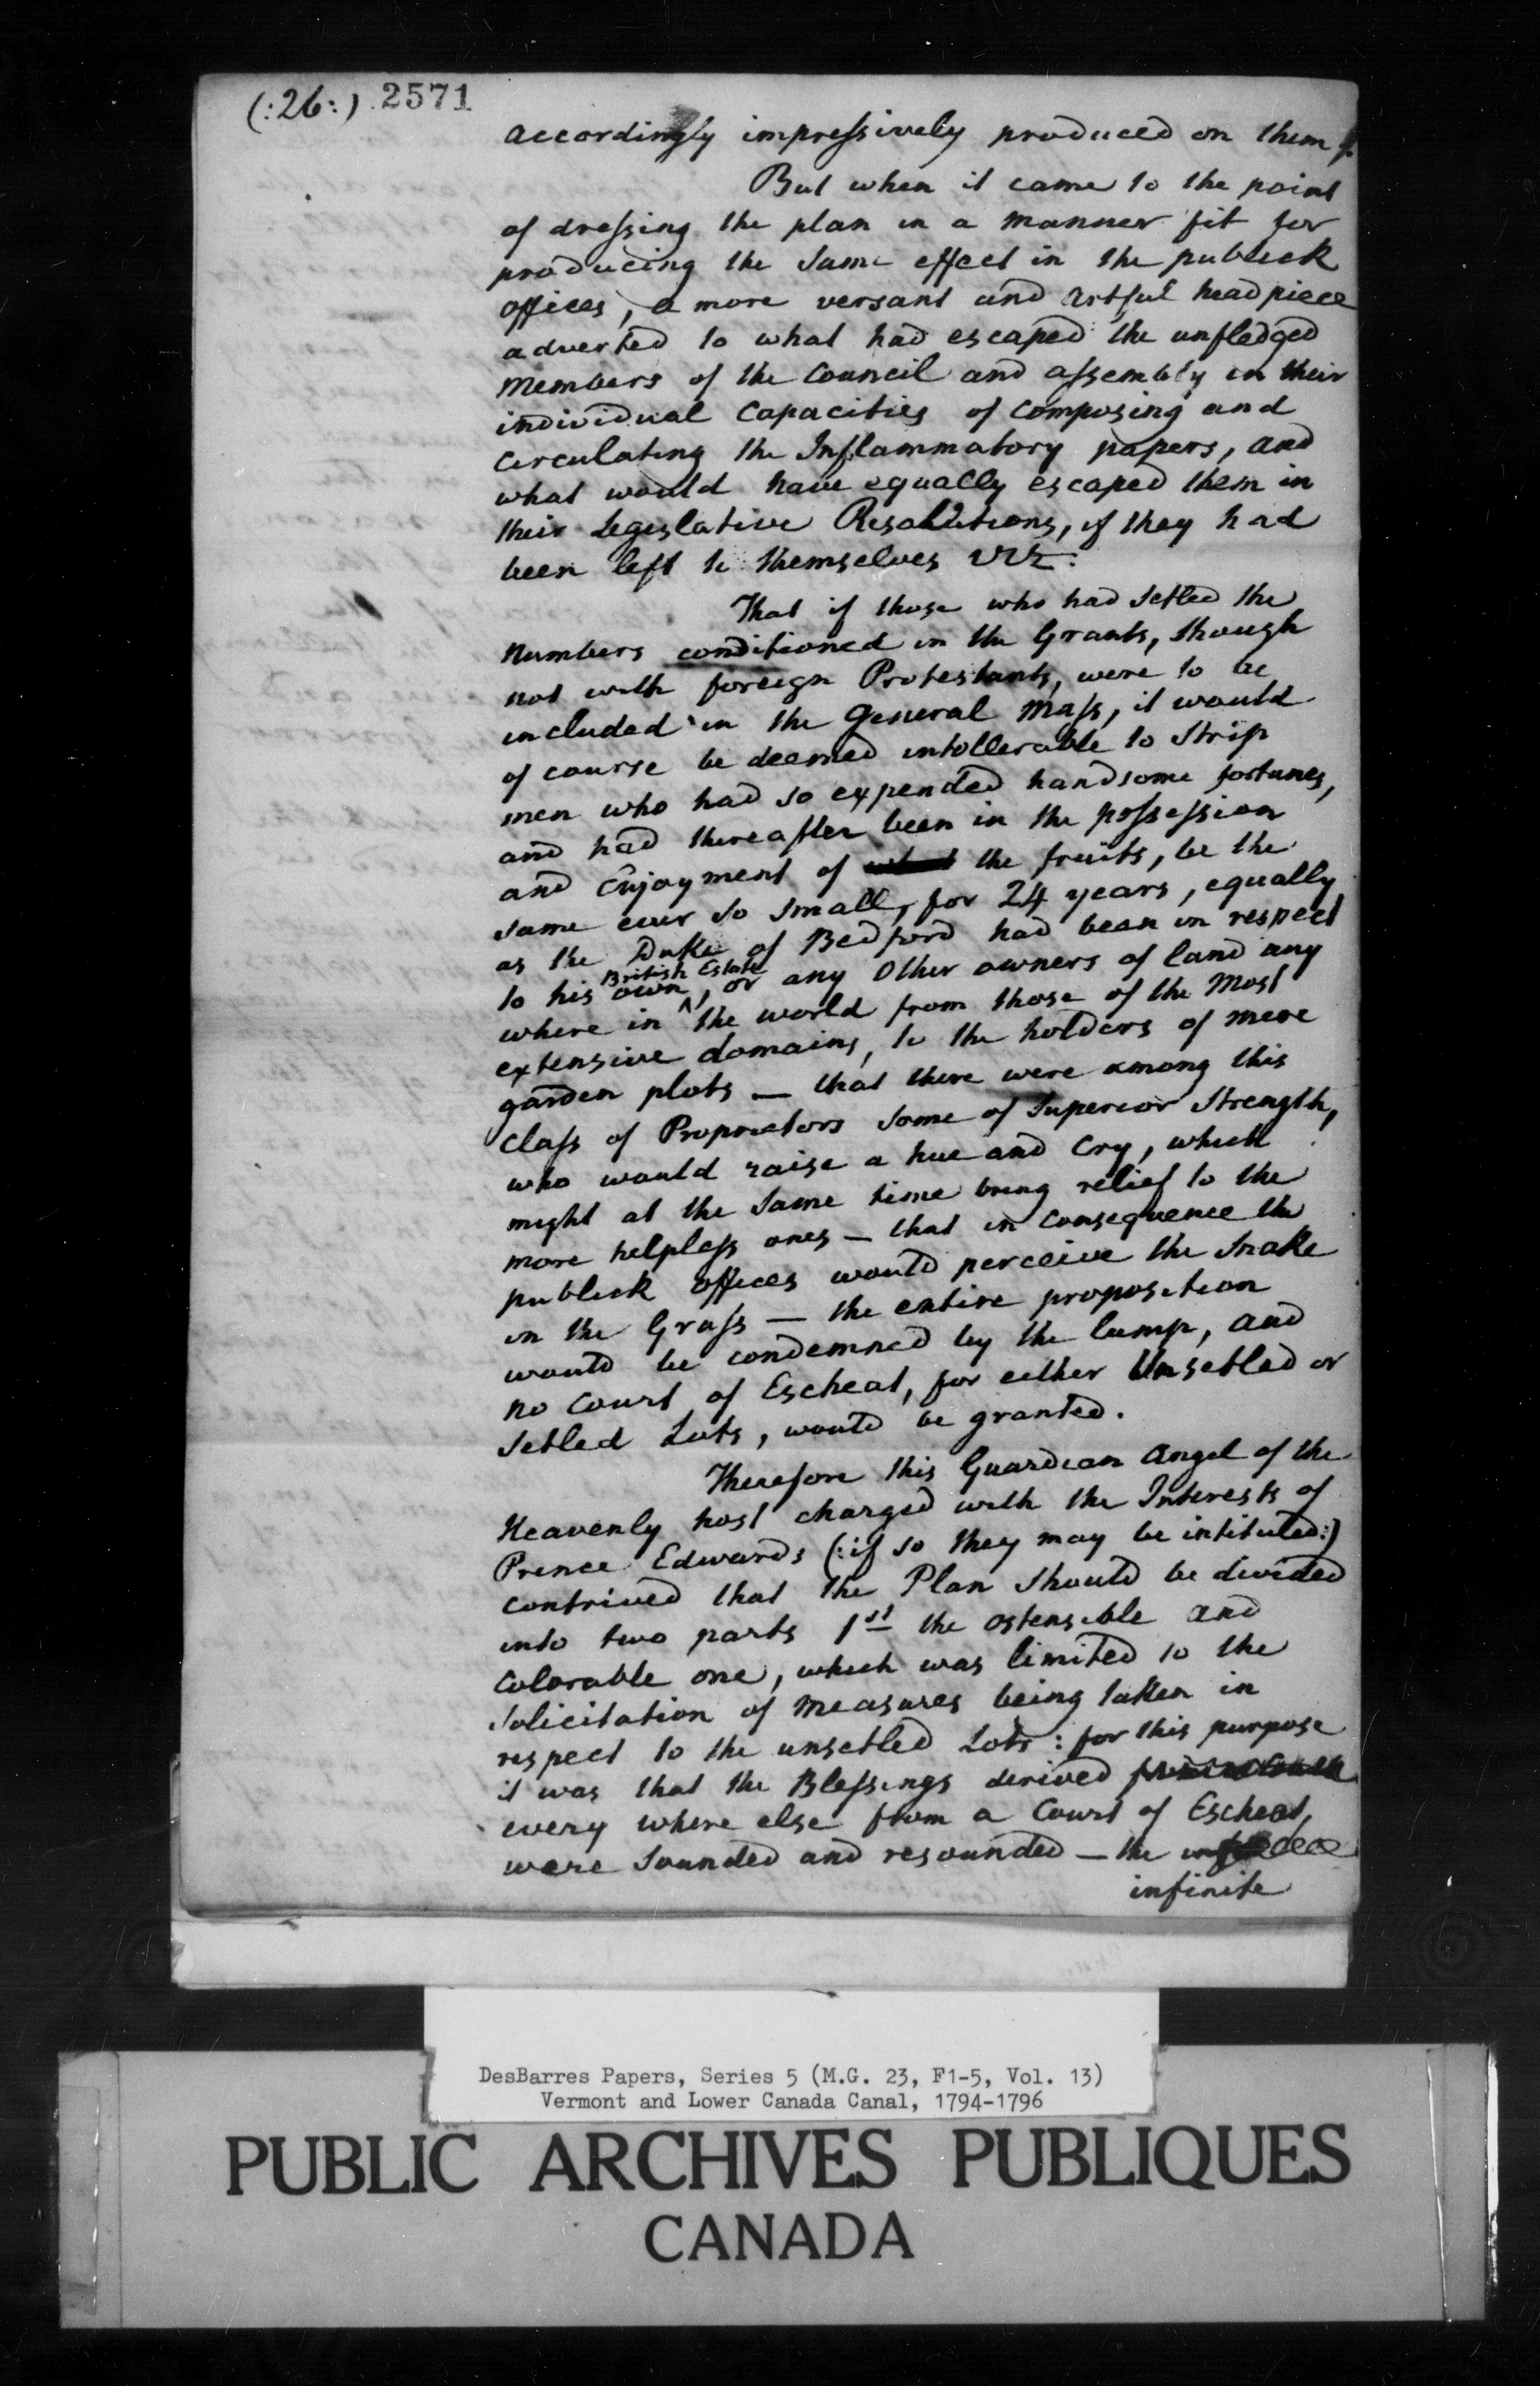 (:26:) 2571
accordingly impressively produced on them
But when it came to the point
of dressing the plan in a manner fit for
producing the same effect in the publick
offices, a more versant and artful headpiece
adverted to what had escaped the unfledged
Members of the Council and assembly in their
individual Capacities of Composing and
circulating the Inflammatory papers, and
what would have equally escaped them in
their Legislative Resolutions, if they had
been left to themselves viz:
That if those who had setled the
numbers conditioned in the Grants, though
not with foreign Protestants, were to be
included in the General Mass, it would
of course be deemed intollerable to Strip
men who had so expended handsome fortunes,
and had thereafter been in the possession
and Enjoyment of the fruits, be the
same ever so small, for 24 years, equally
as the Duke of Bedford had been in respect
British Estate
to his own, or any Other owners of land any
where in the world from those of the Most
extensive domains, to the holders of mere
garden plots — that there were among this
Class of Proprietors some of Superior Strength,
who would raise a hue and Cry, which
might at the same time bring relief to the
more helpless ones — that in consequence the
publick offices would perceive the Snake
in the Grass — the entire proposition
would be condemned by the lump, and
no Court of Escheat, for either Unsetled or
Setled Lots, would be granted.
Therefore this Guardian Angel of the
Heavenly host charged with the Interests of
Prince Edwards (:if so they may be intituled:)
contrived that the Plan should be divided
into two parts 1st the ostensible and
Colorable one, which was limited to the
Solicitation of Measures being taken in
respect to the unsetled Lots: for this purpose
it was that the Blessings derived
every where else from a Court of Escheat,
were Sounded and resounded — the
infinite
DesBarres Papers, Series 5 (M.G. 23, F1-5, Vol. 13)
Vermont and Lower Canada Canal, 1794-1796
PUBLIC ARCHIVES PUBLIQUES
CANADA